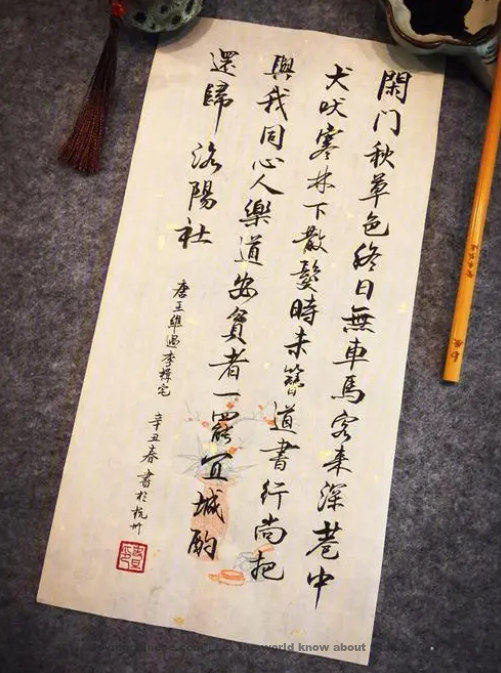 閑门秋草色終日無車馬客来深巷中
犬吠寒林下散髮時未簪道書行尚把
與我同心人樂道安貧者一罷宜城酌
還歸洛陽社
唐王維過李揖宅 辛丑春書於杭州
the world know about